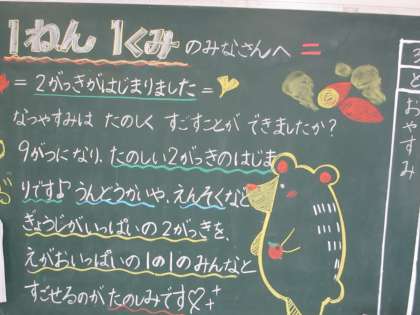 1ねん 1くみ のみなさんへ
= 2がっきがはじまりました =
なつやすみは たのしく すごすことが できましたか？
9がつになり、たのしい2がっきのはじま
りです♪ うんどうかいや、えんそくなど
ぎょうじがいっぱいの2がっきを、
えがおいっぱいの1の1のみんなと
すごせるのがたのしみです♡
おやすみ